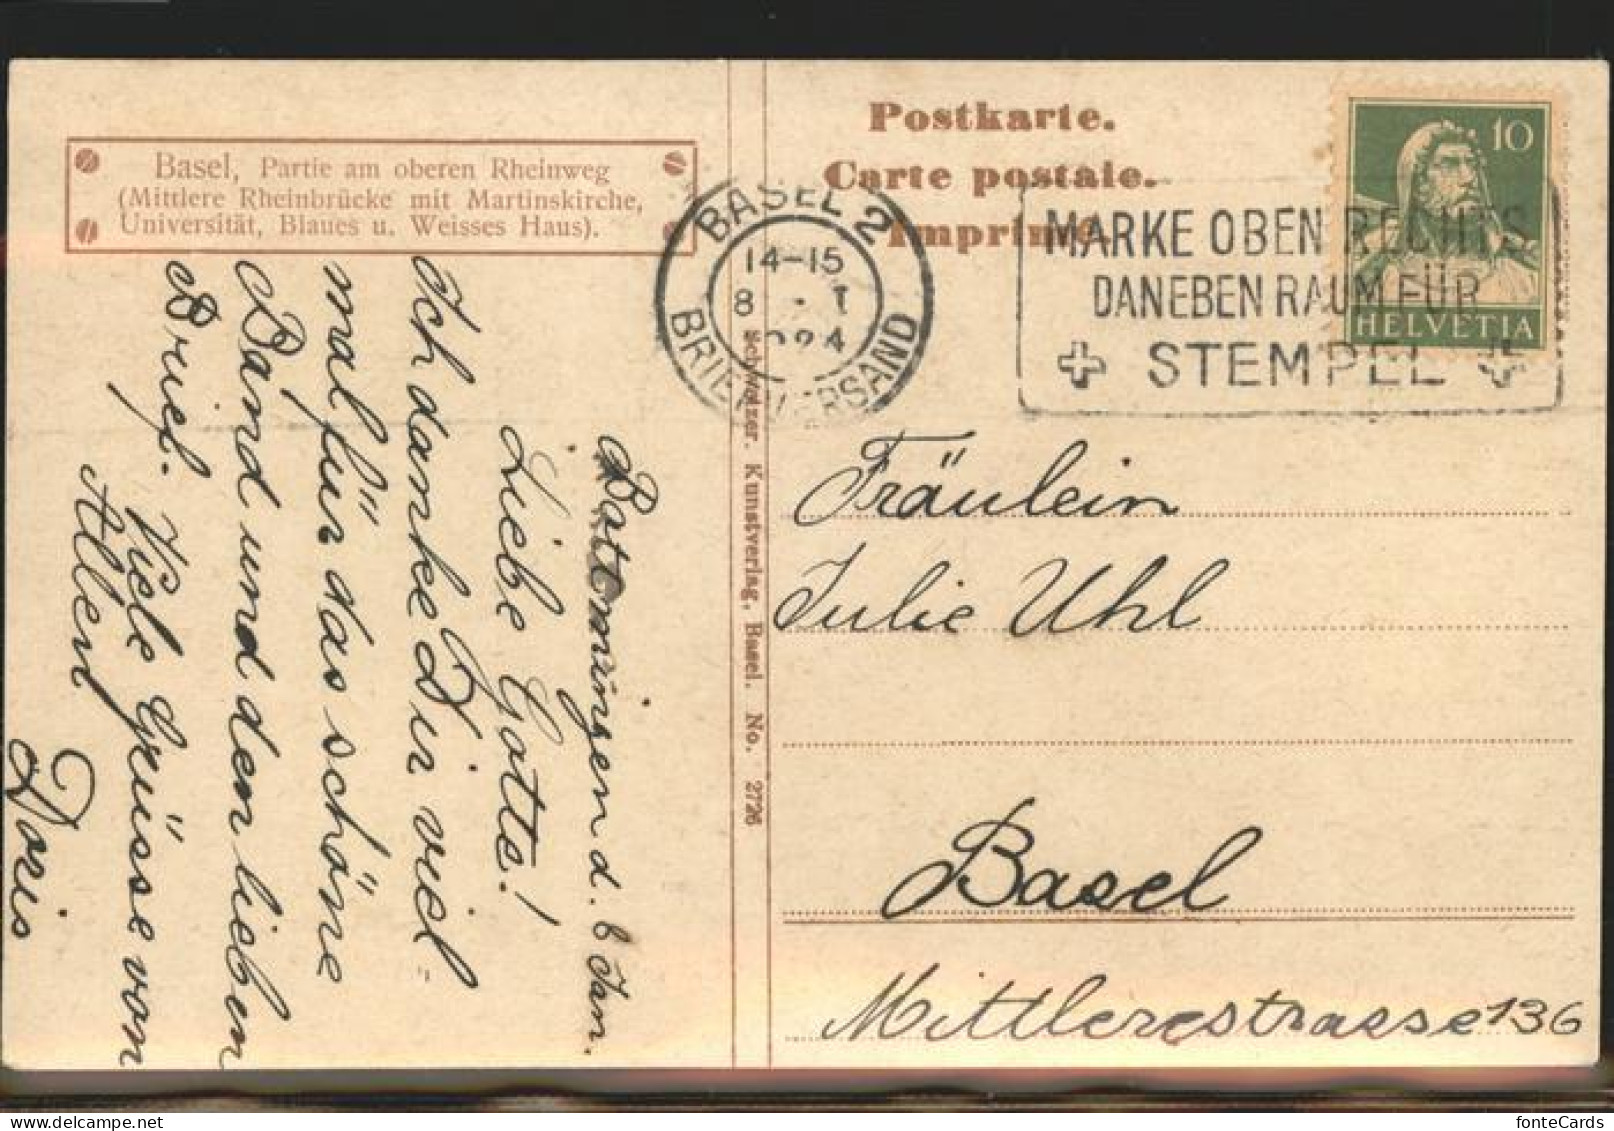 Basel, Partie am oberen Rheinweg
(Mittlere Rheinbrücke mit Martinskirche,
Universität, Blaues u. Weisses Haus).
Postkarte.
Carte postale.
Imprimé.
BASEL 2
14-15
8 . I
1924
BRIEFVERSAND
MARKE OBEN RECHTS
DANEBEN RAUM FÜR
STEMPEL
10
HELVETIA
Schweizer. Kunstverlag, Basel. No. 2726
Bottmingen d. 6 Jan.
Liebe Gotte!
Ich danke Dir viel-
mal für das schöne
Band und den lieben
Brief. Viele Grüsse von
Allen
Doris
Fräulein
Julie Uhl
Basel
Mittlerestrasse 136
fonteCards